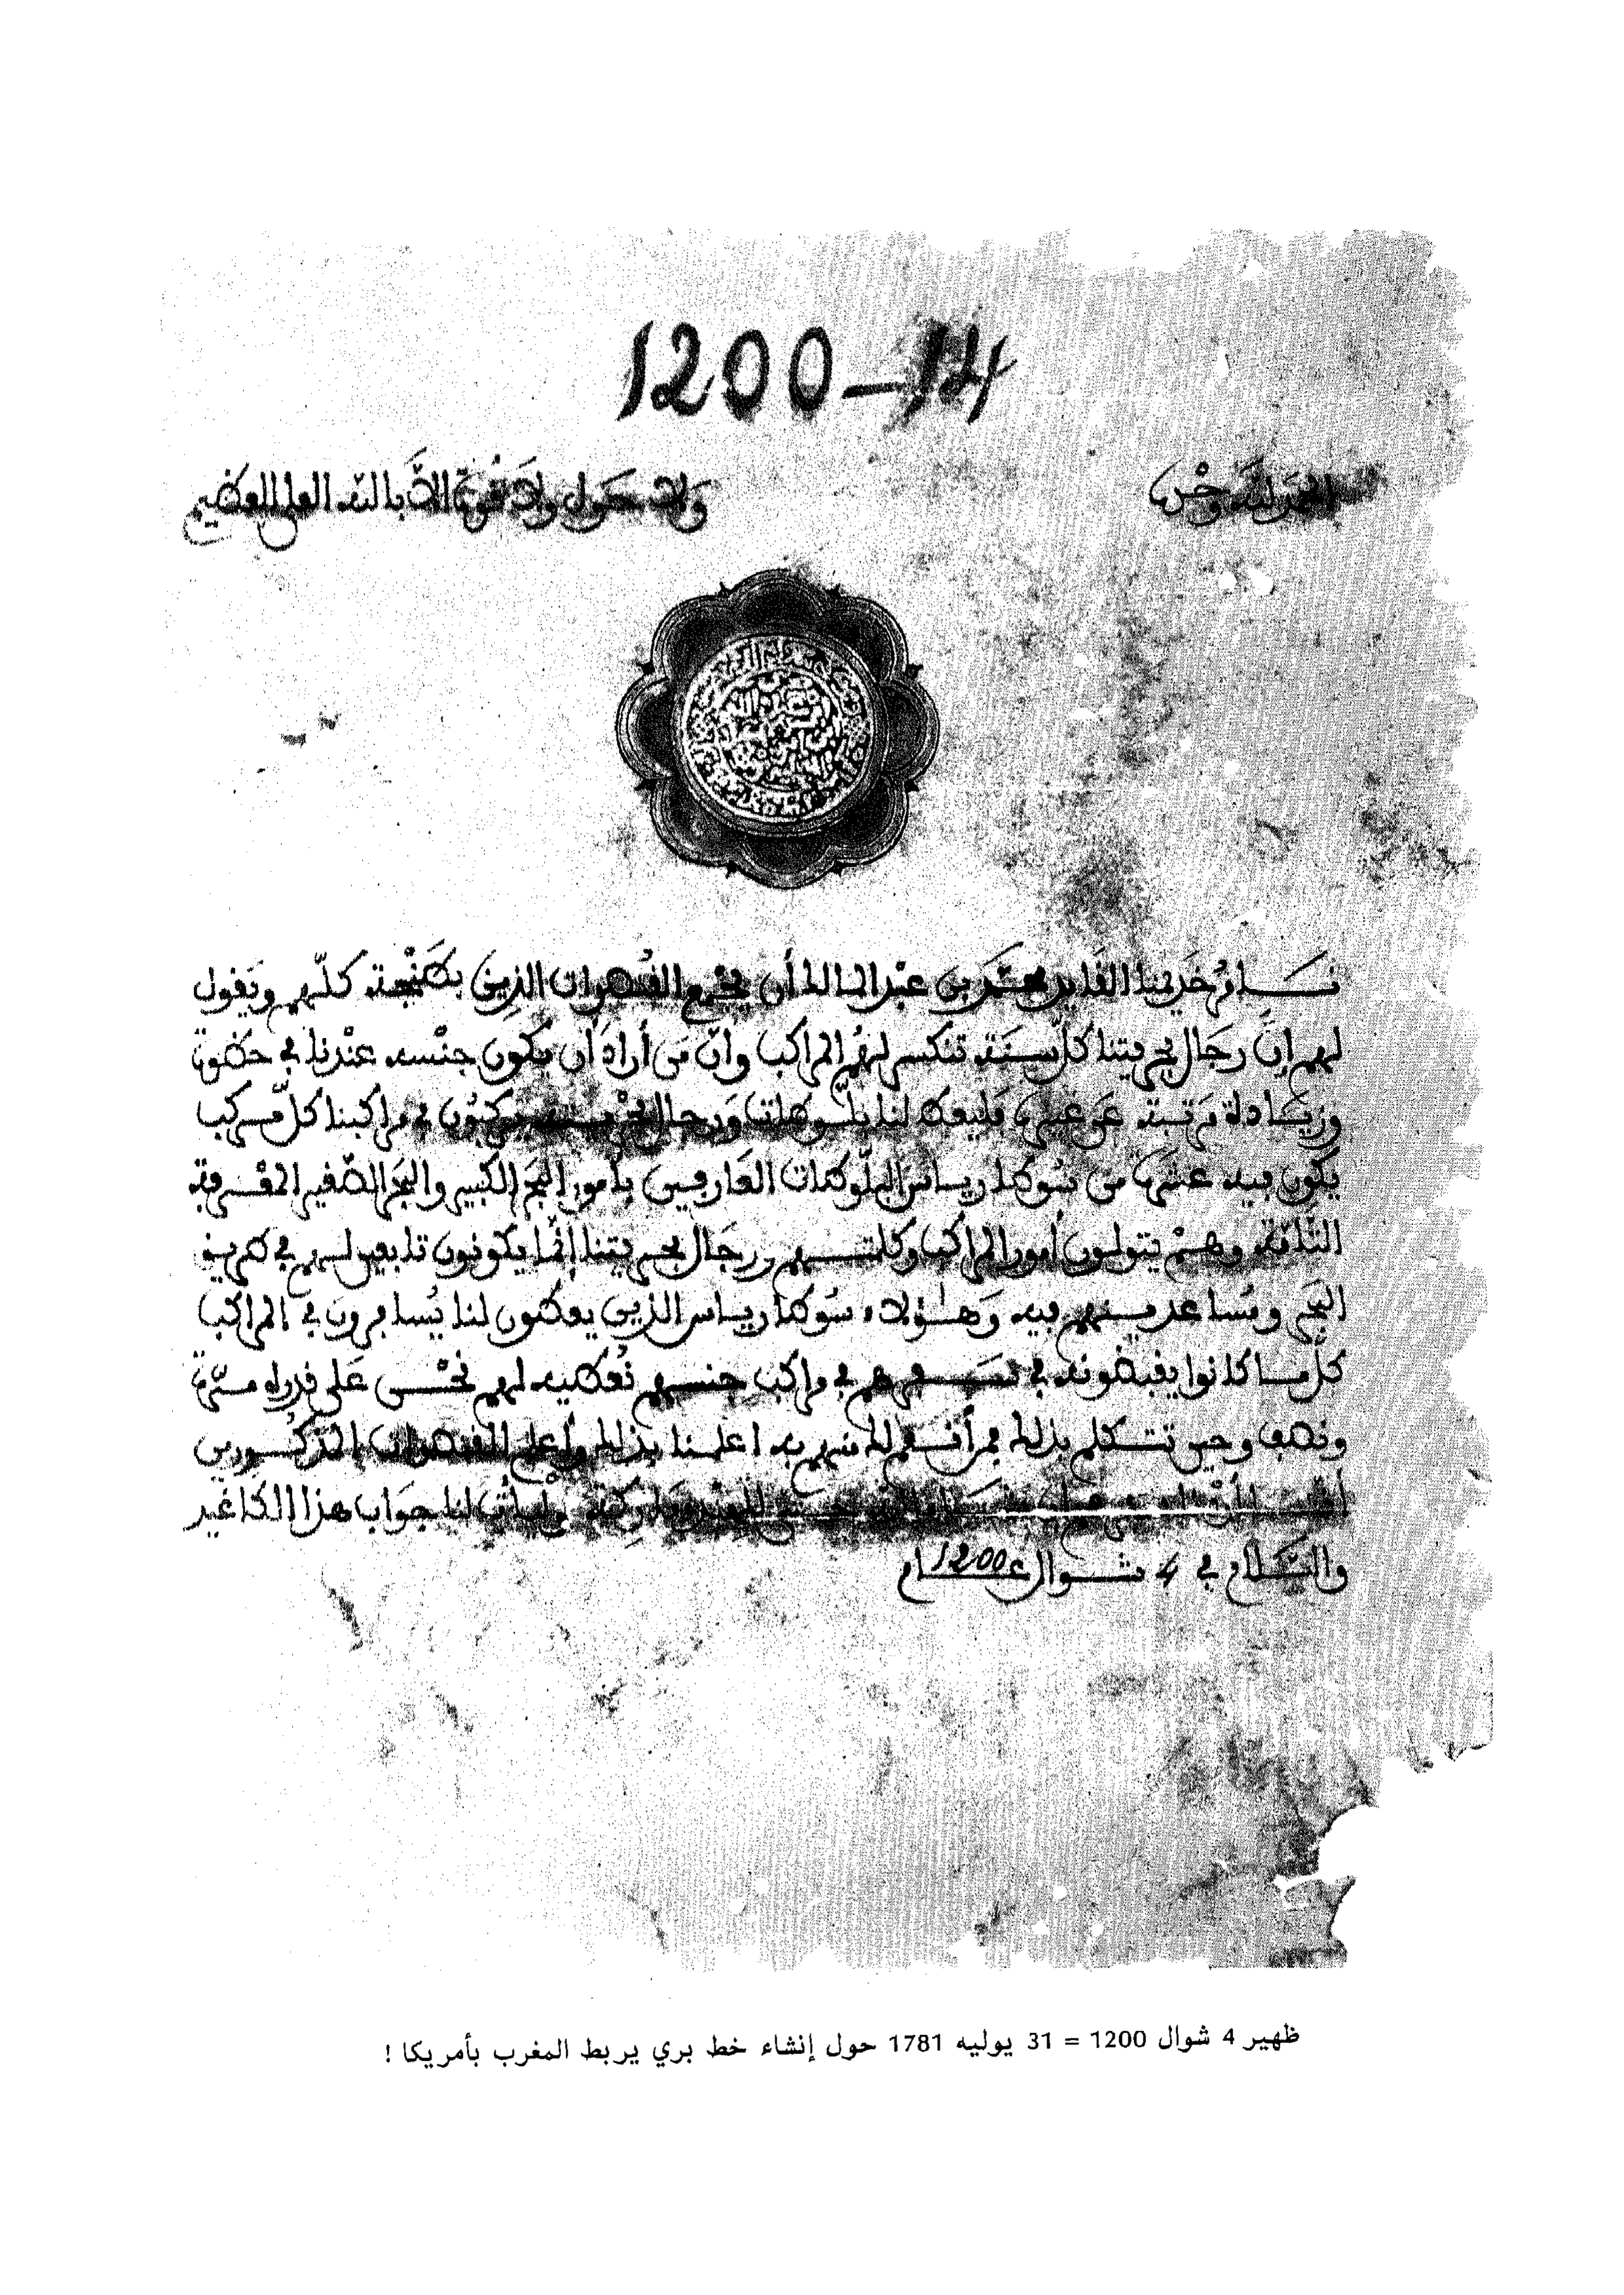 1200-14
الحمد لله وحده
ولا حول ولا قوة الا بالله العلي العظيم
نامر خديمنا القايد محمد بن عبد المالك أن يجمع القنصوات الذين بطنجة كلهم ويقول
لهم إن رجال بحريتنا كل سنة تنكسر لهم المراكب وان من أراد أن يكون جنسه عندنا في حظوة
وزيادة مرتبة عن غيره فليعط لنا بلوطات ورجال يركبون في مراكبنا كل مركب
يكون فيه عشرة من سوطا رياس البلوطات العارفين بأمور البحر الكبير والبحر الصغير المفرقة
الثلاثة وهم يتولون أمور المراكب وكلتهم ورجال بحريتنا إنما يكونون تابعين لهم في طريق
البحر ومساعدينهم فيه وهؤلاء سوطا رياس الذين يعطون لنا يسافرون في المراكب
كل ما كانوا يقبضونه في سفرهم في مراكب جنسهم نعطيه لهم نحن على قدره مرة
ونصف وحين تتكلم بذلك فمن أنعم لك منهم به اعلمنا بذلك وأعلم القنصوات المذكورين
لنا جواب هذا الكاغيد
والسلام في 4 شوال عام 1200
ظهير 4 شوال 1200 = 31 يوليه 1781 حول إنشاء خط بري يربط المغرب بأمريكا !